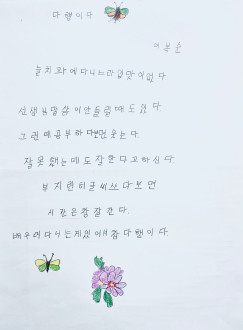 다행이다
이봉순
늘 치과에 다니느라 입맛이 없다
선생님 말씀이 안들릴 때도 있다.
그런데 공부하다보면 웃는다
잘못했는데도 잘한다고 하신다
부지런히 글씨쓰다보면
시간은 참 잘 간다.
배우러 다니는게 있어 참 다행이다.